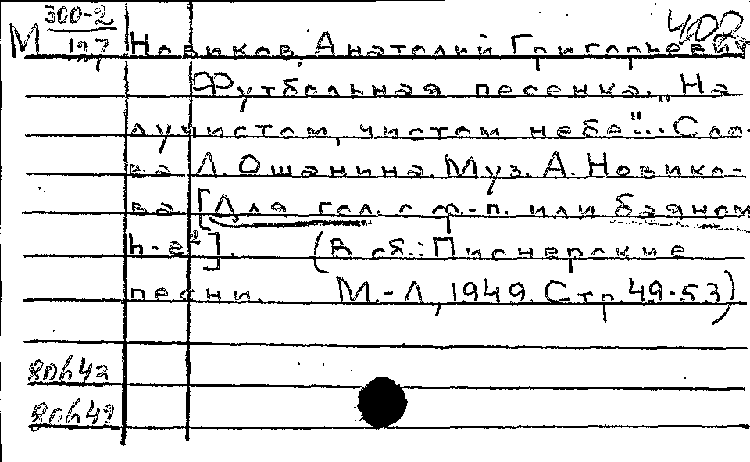 М 300-2 402
197 Новиков, Анатолий Григорьевич
Футбольная песенка. „На
лучистом, чистом небе"... Сло-
ва Л. Ошанина. Муз. А. Новико-
ва [Для гол. с ф.-п. или баяном
h-e²]. (В сб.: Пионерские
песни. М.-Л., 1949. Стр. 49-53)